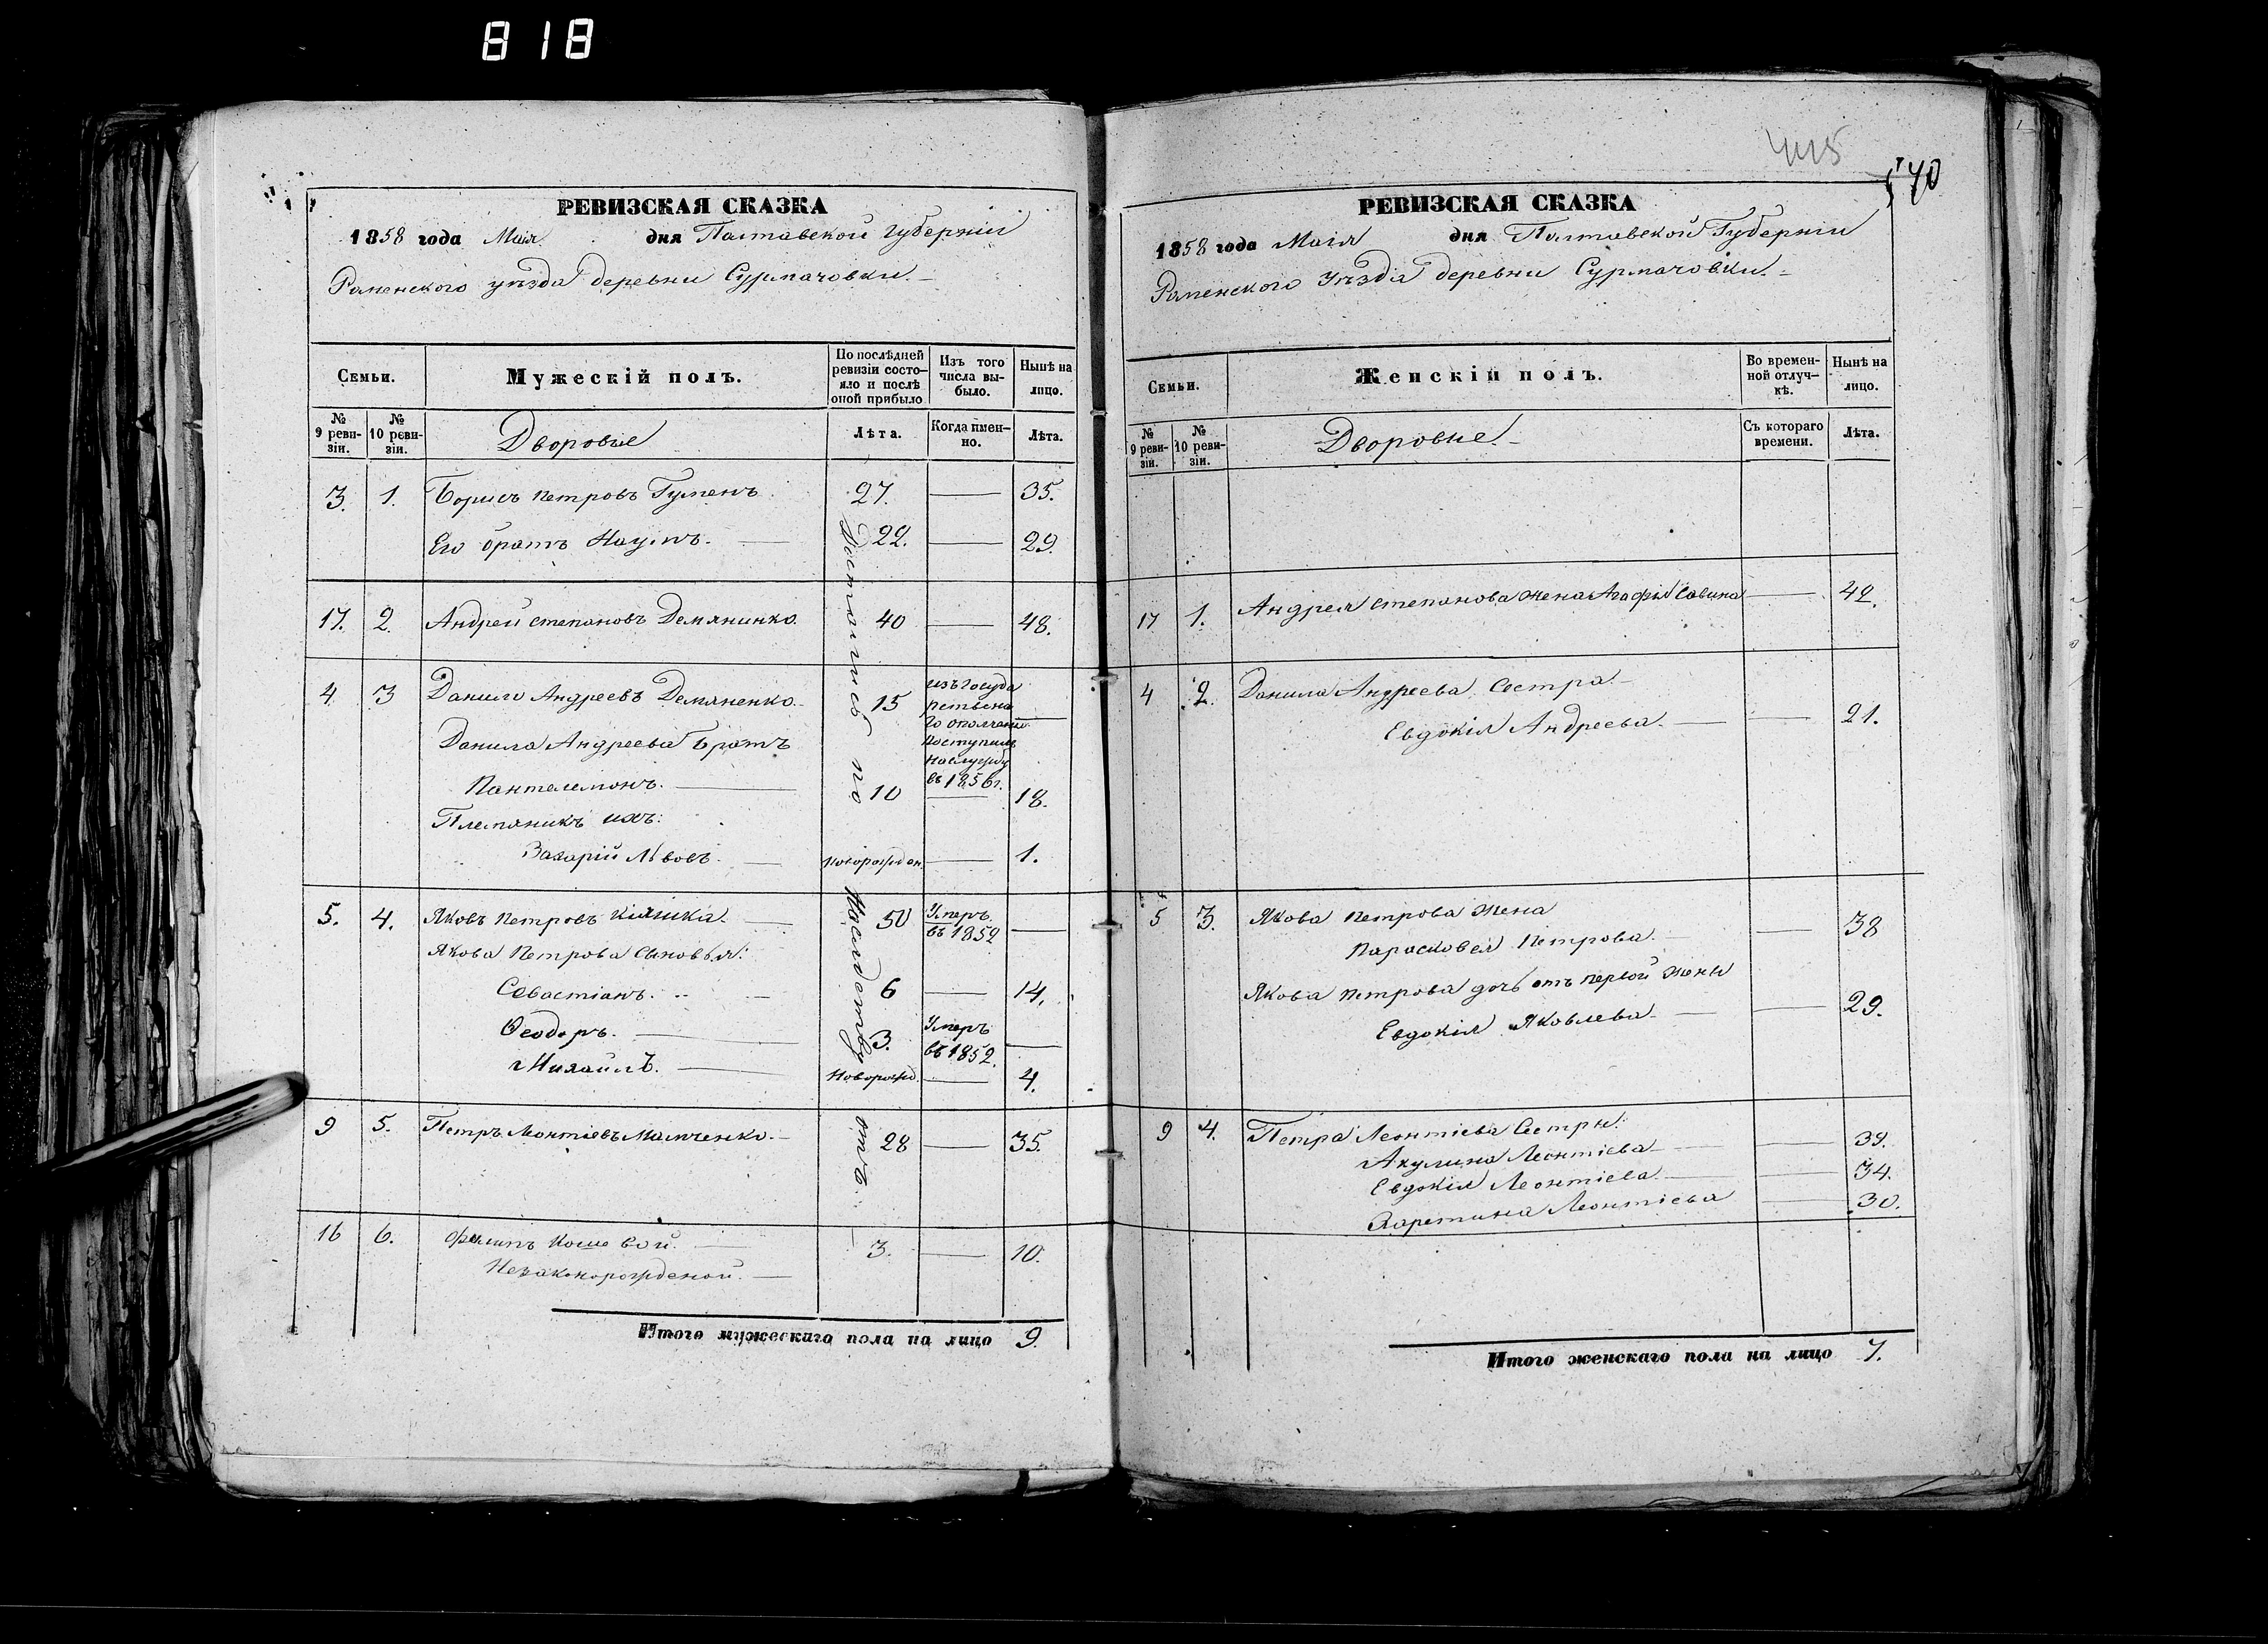 818
445
540
РЕВИЗСКАЯ СКАЗКА
1858 года Маія дня Полтавской Губерніи
Роменского уѣзда деревни Сурмачовки.
Семьи.
Мужескій полъ.
По послѣдней ревизіи состояло и послѣ оной прибыло
Изъ того числа выбыло.
Нынѣ на лицо.
№ 9 ревизіи.
№ 10 ревизіи.
Дворовые
Лѣта.
Когда именно.
Лѣта.
3. 1. Борисъ Петровъ Гуменъ 27. — 35.
Его братъ Наумъ. — 22. — 29.
17. 2. Андрей Степановъ Демянинко. 40 — 48.
4 3 Данило Андреевъ Демяненко. 15 изъ Госуда
рствена
го ополчения
поступилъ
на службу
въ 1856 г. —
Данила Андреева братъ
Пантелемонъ. — 10 — 18.
Племяникъ ихъ:
Захарій Львовъ. — новорожден. — 1.
5. 4. Яковъ Петровъ — 50 Умеръ
въ 1852 —
Якова Петрова сыновья:
Севастіанъ. — 6 — 14.
Ѳеодоръ. — 3. Умеръ
въ 1852. —
Михайлъ. — Новорожд. — 4.
9 5. Петръ Леонтіевъ Мамченко. — 28 — 35.
16 6. Филипъ Кошевой. — 3. — 10.
Незаконорожденой. —
Достались по наслѣдству отъ
Итого мужескаго пола на лицо 9.
РЕВИЗСКАЯ СКАЗКА
1858 года Маія дня Полтавской Губерніи
Роменского Уѣзда деревни Сурмачовки.
Семьи.
Женскій полъ.
Во временной отлучкѣ.
Нынѣ на лицо.
№ 9 ревизіи.
№ 10 ревизіи.
Дворовые
Съ котораго времени.
Лѣта.
17 1. Андрея Степанова жена Агафья Савина — 42.
4 2. Данила Андреева Сестра
Евдокія Андреева. — 21.
5 3. Якова Петрова жена
Парасковея Петрова. — 38
Якова Петрова дочь отъ первой жены
Евдокія Яковлева — 29.
9 4. Петра Леонтіева Сестры:
Акулина Леонтіева — 39.
Евдокія Леонтіева. — 34.
Харетина Леонтіева — 30.
Итого женскаго пола на лицо 7.